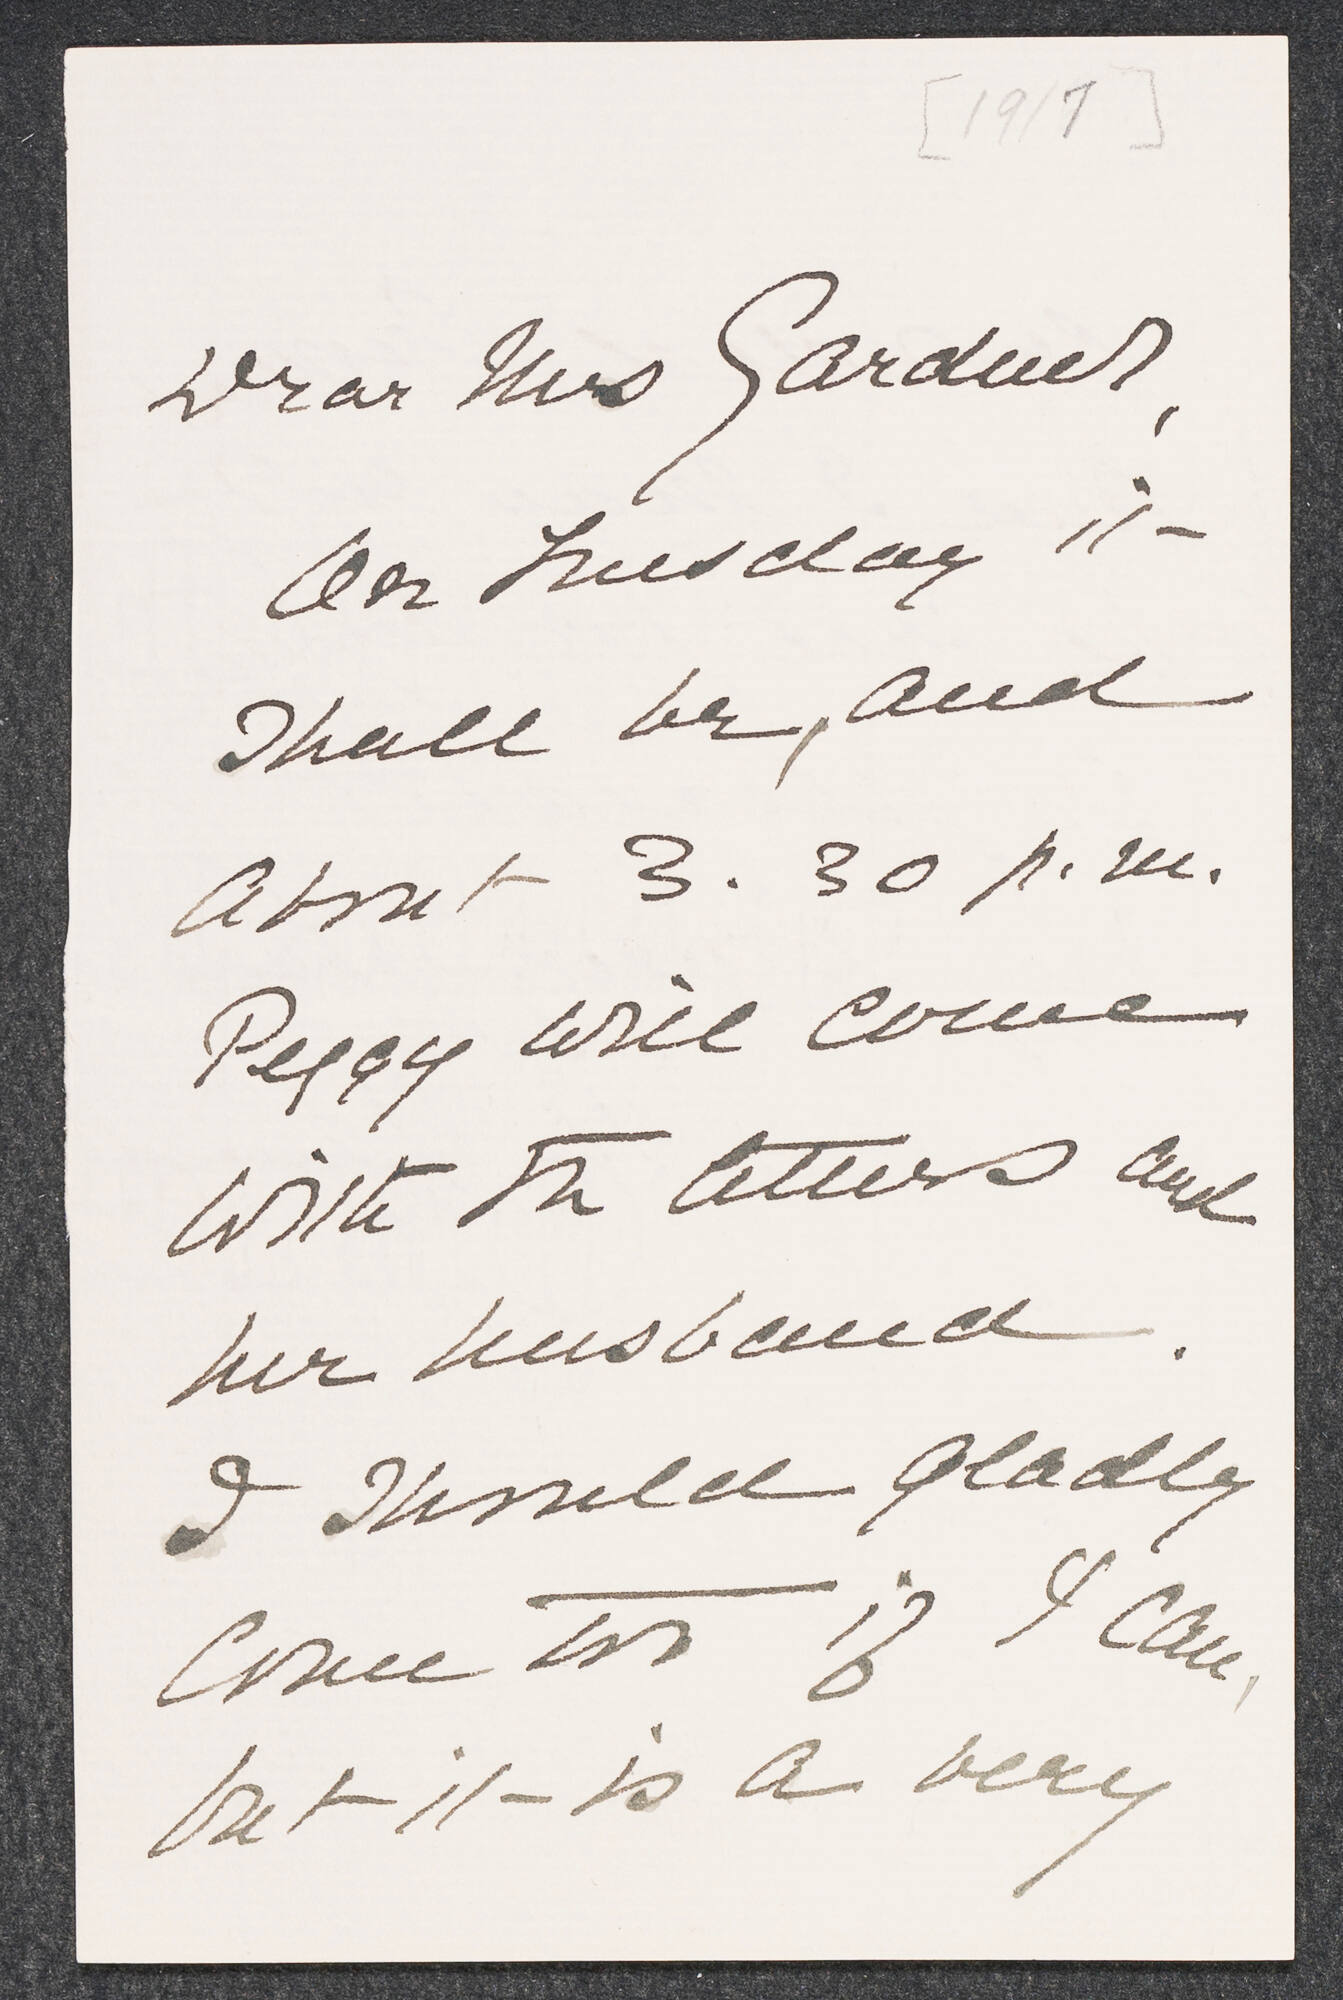 [1917]
Dear Mrs Gardner,
On Tuesday it
shall be, and
about 3.30 p.m.
Peggy will come
with the letters and
her husband.
I should gladly
come too if I can,
but it is a very